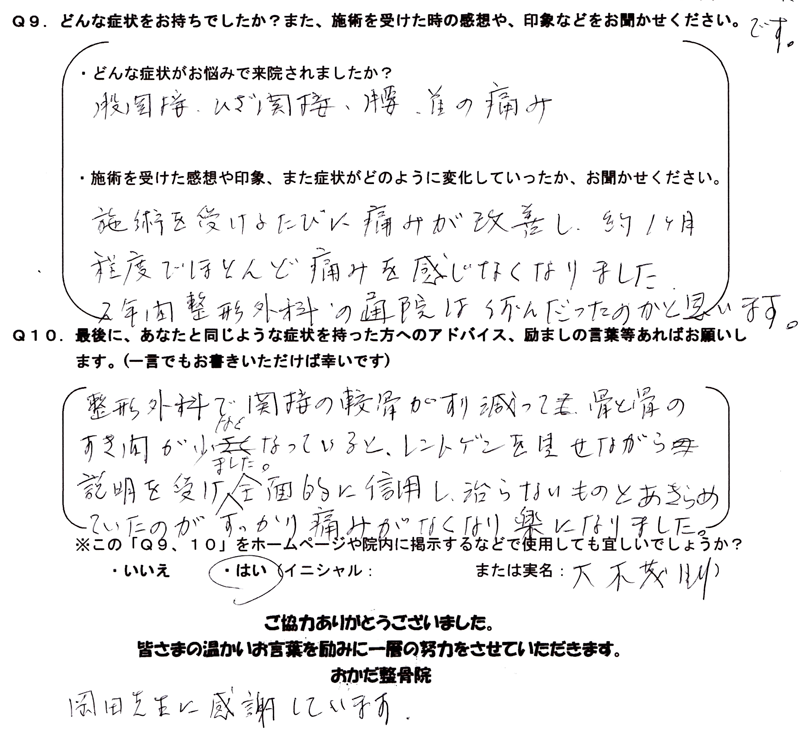 Q9．どんな症状をお持ちでしたか？また、施術を受けた時の感想や、印象などをお聞かせください。
です。
・どんな症状がお悩みで来院されましたか？
股関接、ひざ関接、腰、首の痛み
・施術を受けた感想や印象、また症状がどのように変化していったか、お聞かせください。
施術を受けるたびに痛みが改善し、約1ヶ月
程度でほとんど痛みを感じなくなりました
2年間整形外科の通院は何んだったのかと思います。
Q10．最後に、あなたと同じような症状を持った方へのアドバイス、励ましの言葉等あればお願いし
ます。(一言でもお書きいただけば幸いです)
整形外科で関接の軟骨がすり減って 骨と骨の
すき間が少なくなっていると、レントゲンを見せながら
説明を受けました。全面的に信用し、治らないものとあきらめ
ていたのがすっかり痛みがなくなり楽になりました。
※この「Q9、10」をホームページや院内に掲示するなどで使用しても宜しいでしょうか？
・いいえ ・はい（イニシャル： または実名： 茂則）
ご協力ありがとうございました。
皆さまの温かいお言葉を励みに一層の努力をさせていただきます。
おかだ整骨院
岡田先生に感謝しています．